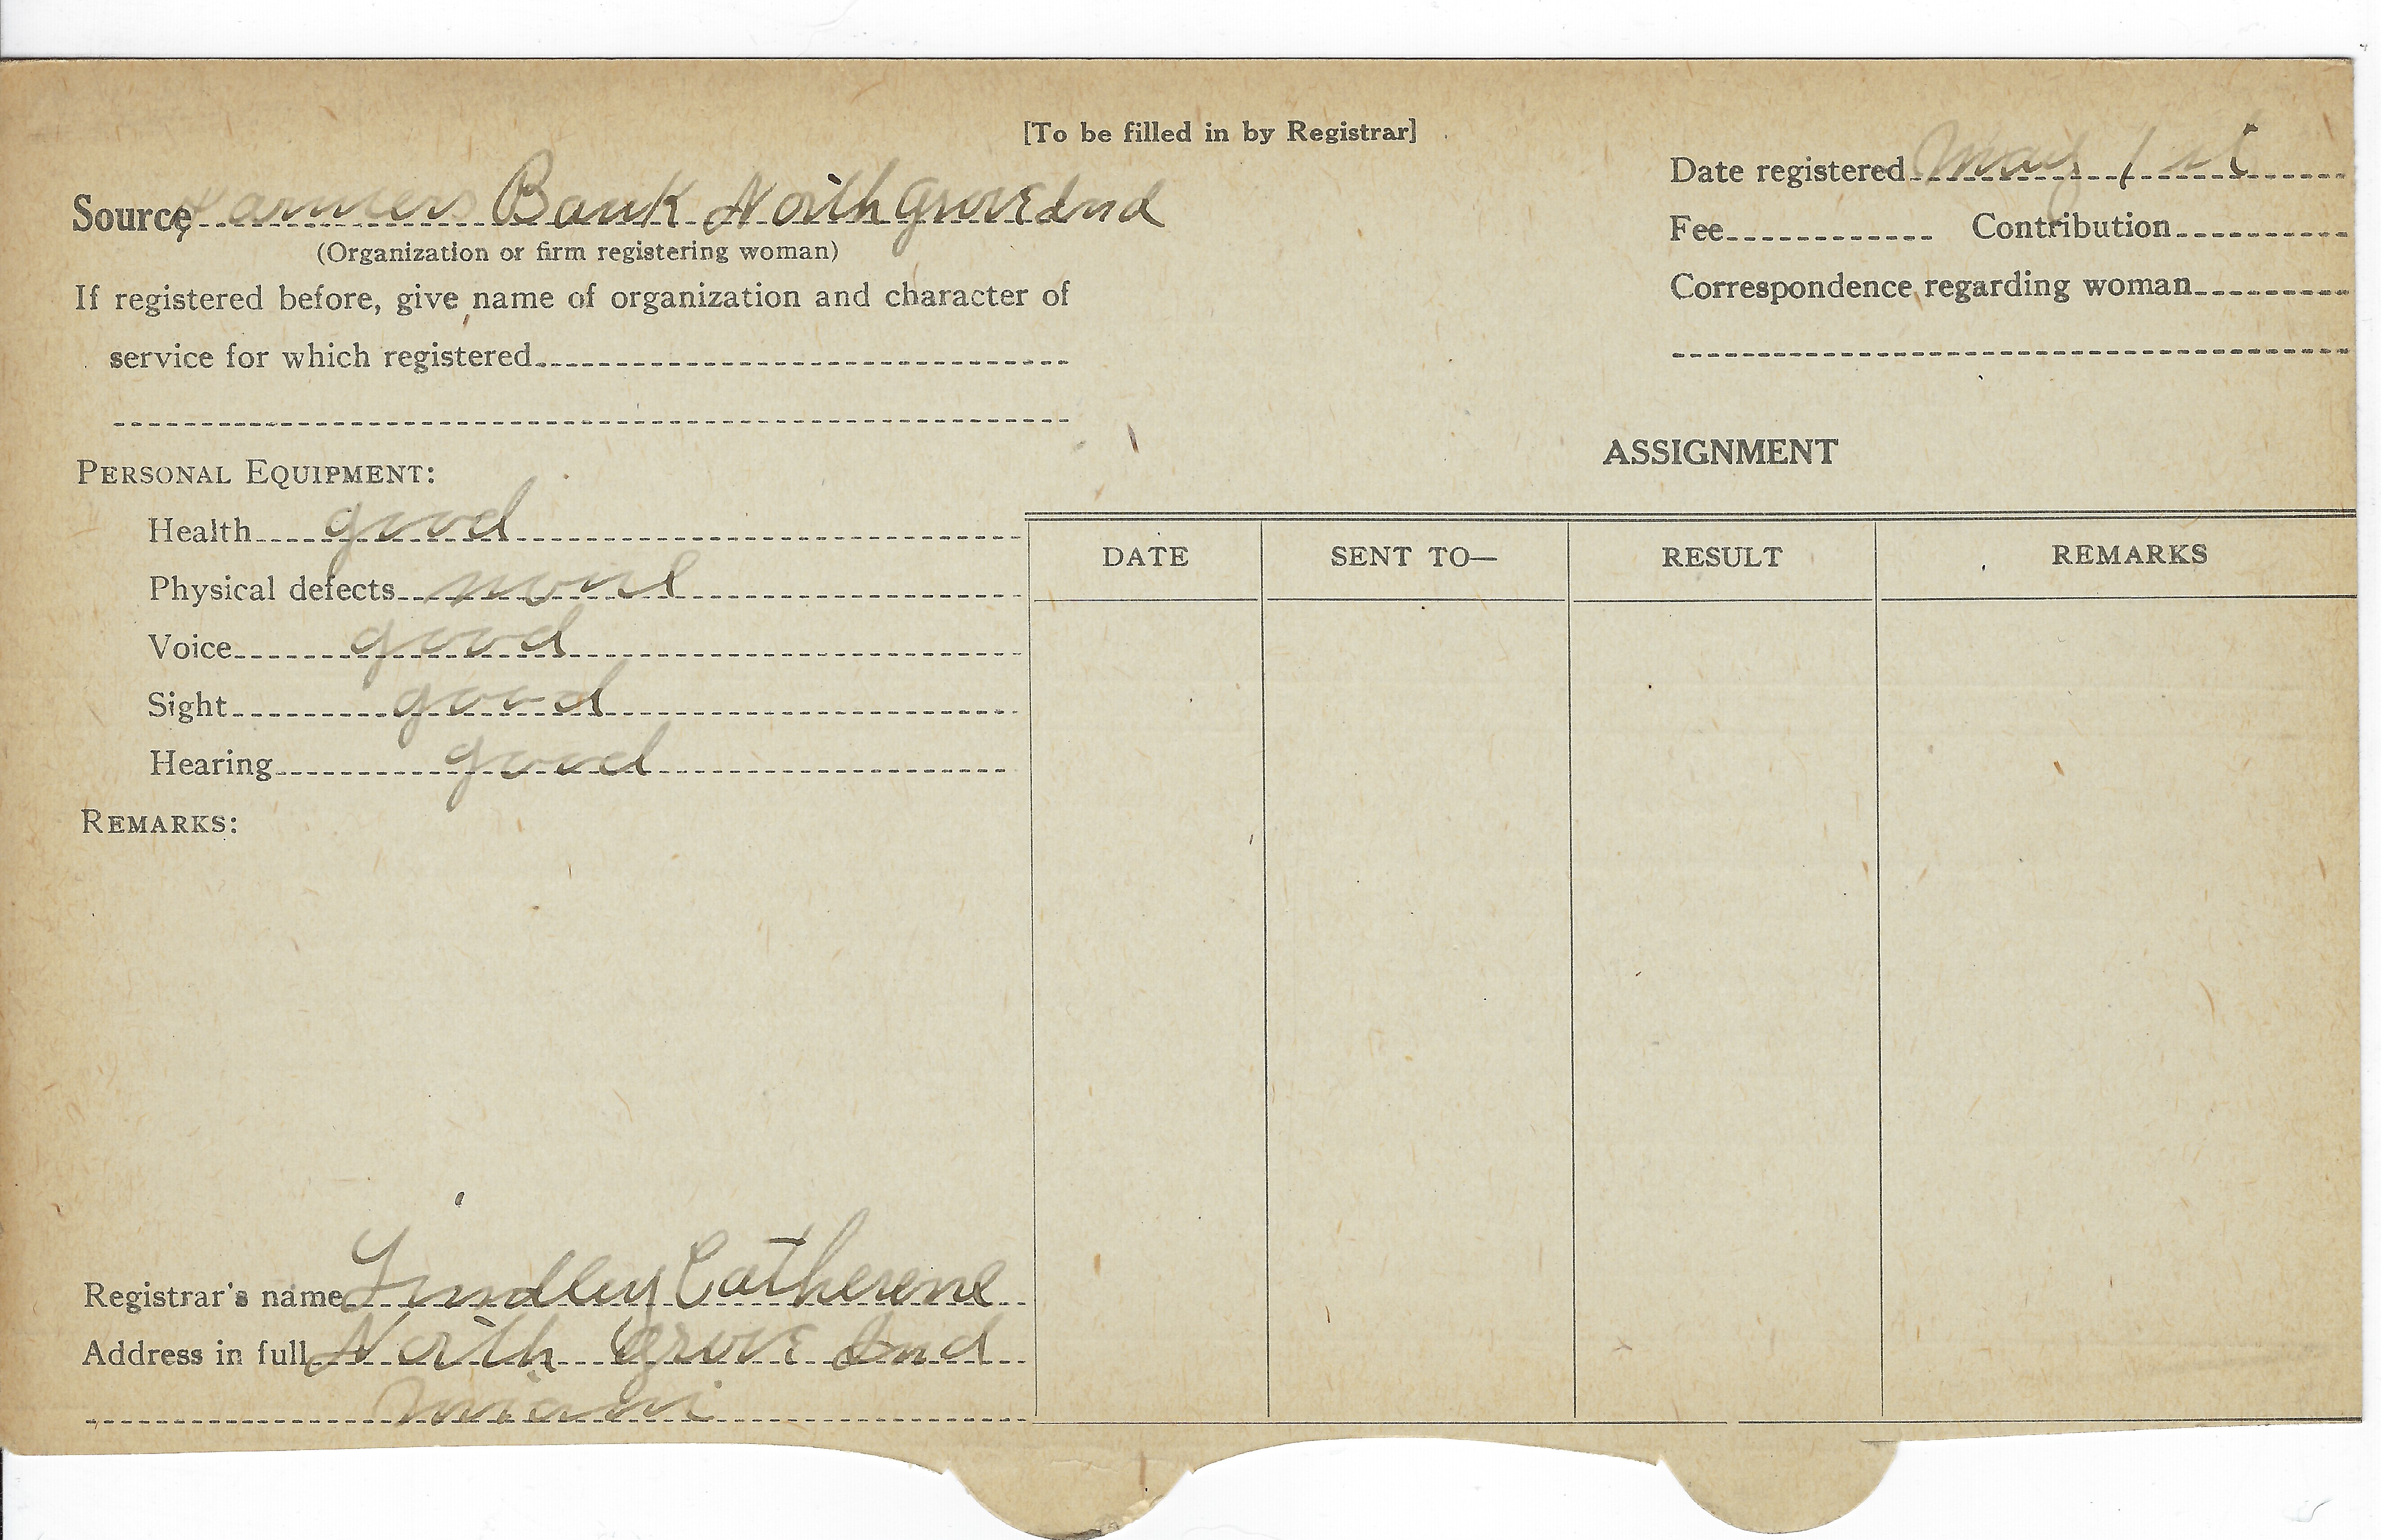 [To be filled in by Registrar]
Date registered May 1st
Source Farmers Bank North Grove Ind
(Organization or firm registering woman)
Fee Contribution
If registered before, give name of organization and character of
service for which registered
Correspondence regarding woman
ASSIGNMENT
PERSONAL EQUIPMENT:
Health good
Physical defects none
Voice good
Sight good
Hearing good
DATE SENT TO— RESULT REMARKS
REMARKS:
Registrar's name Lindley Catherene
Address in full North Grove Ind
Miami